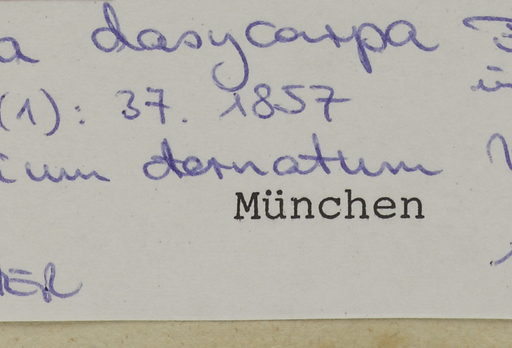 a dasycarpa
(1): 37. 1857
ium ternatum
München
ER